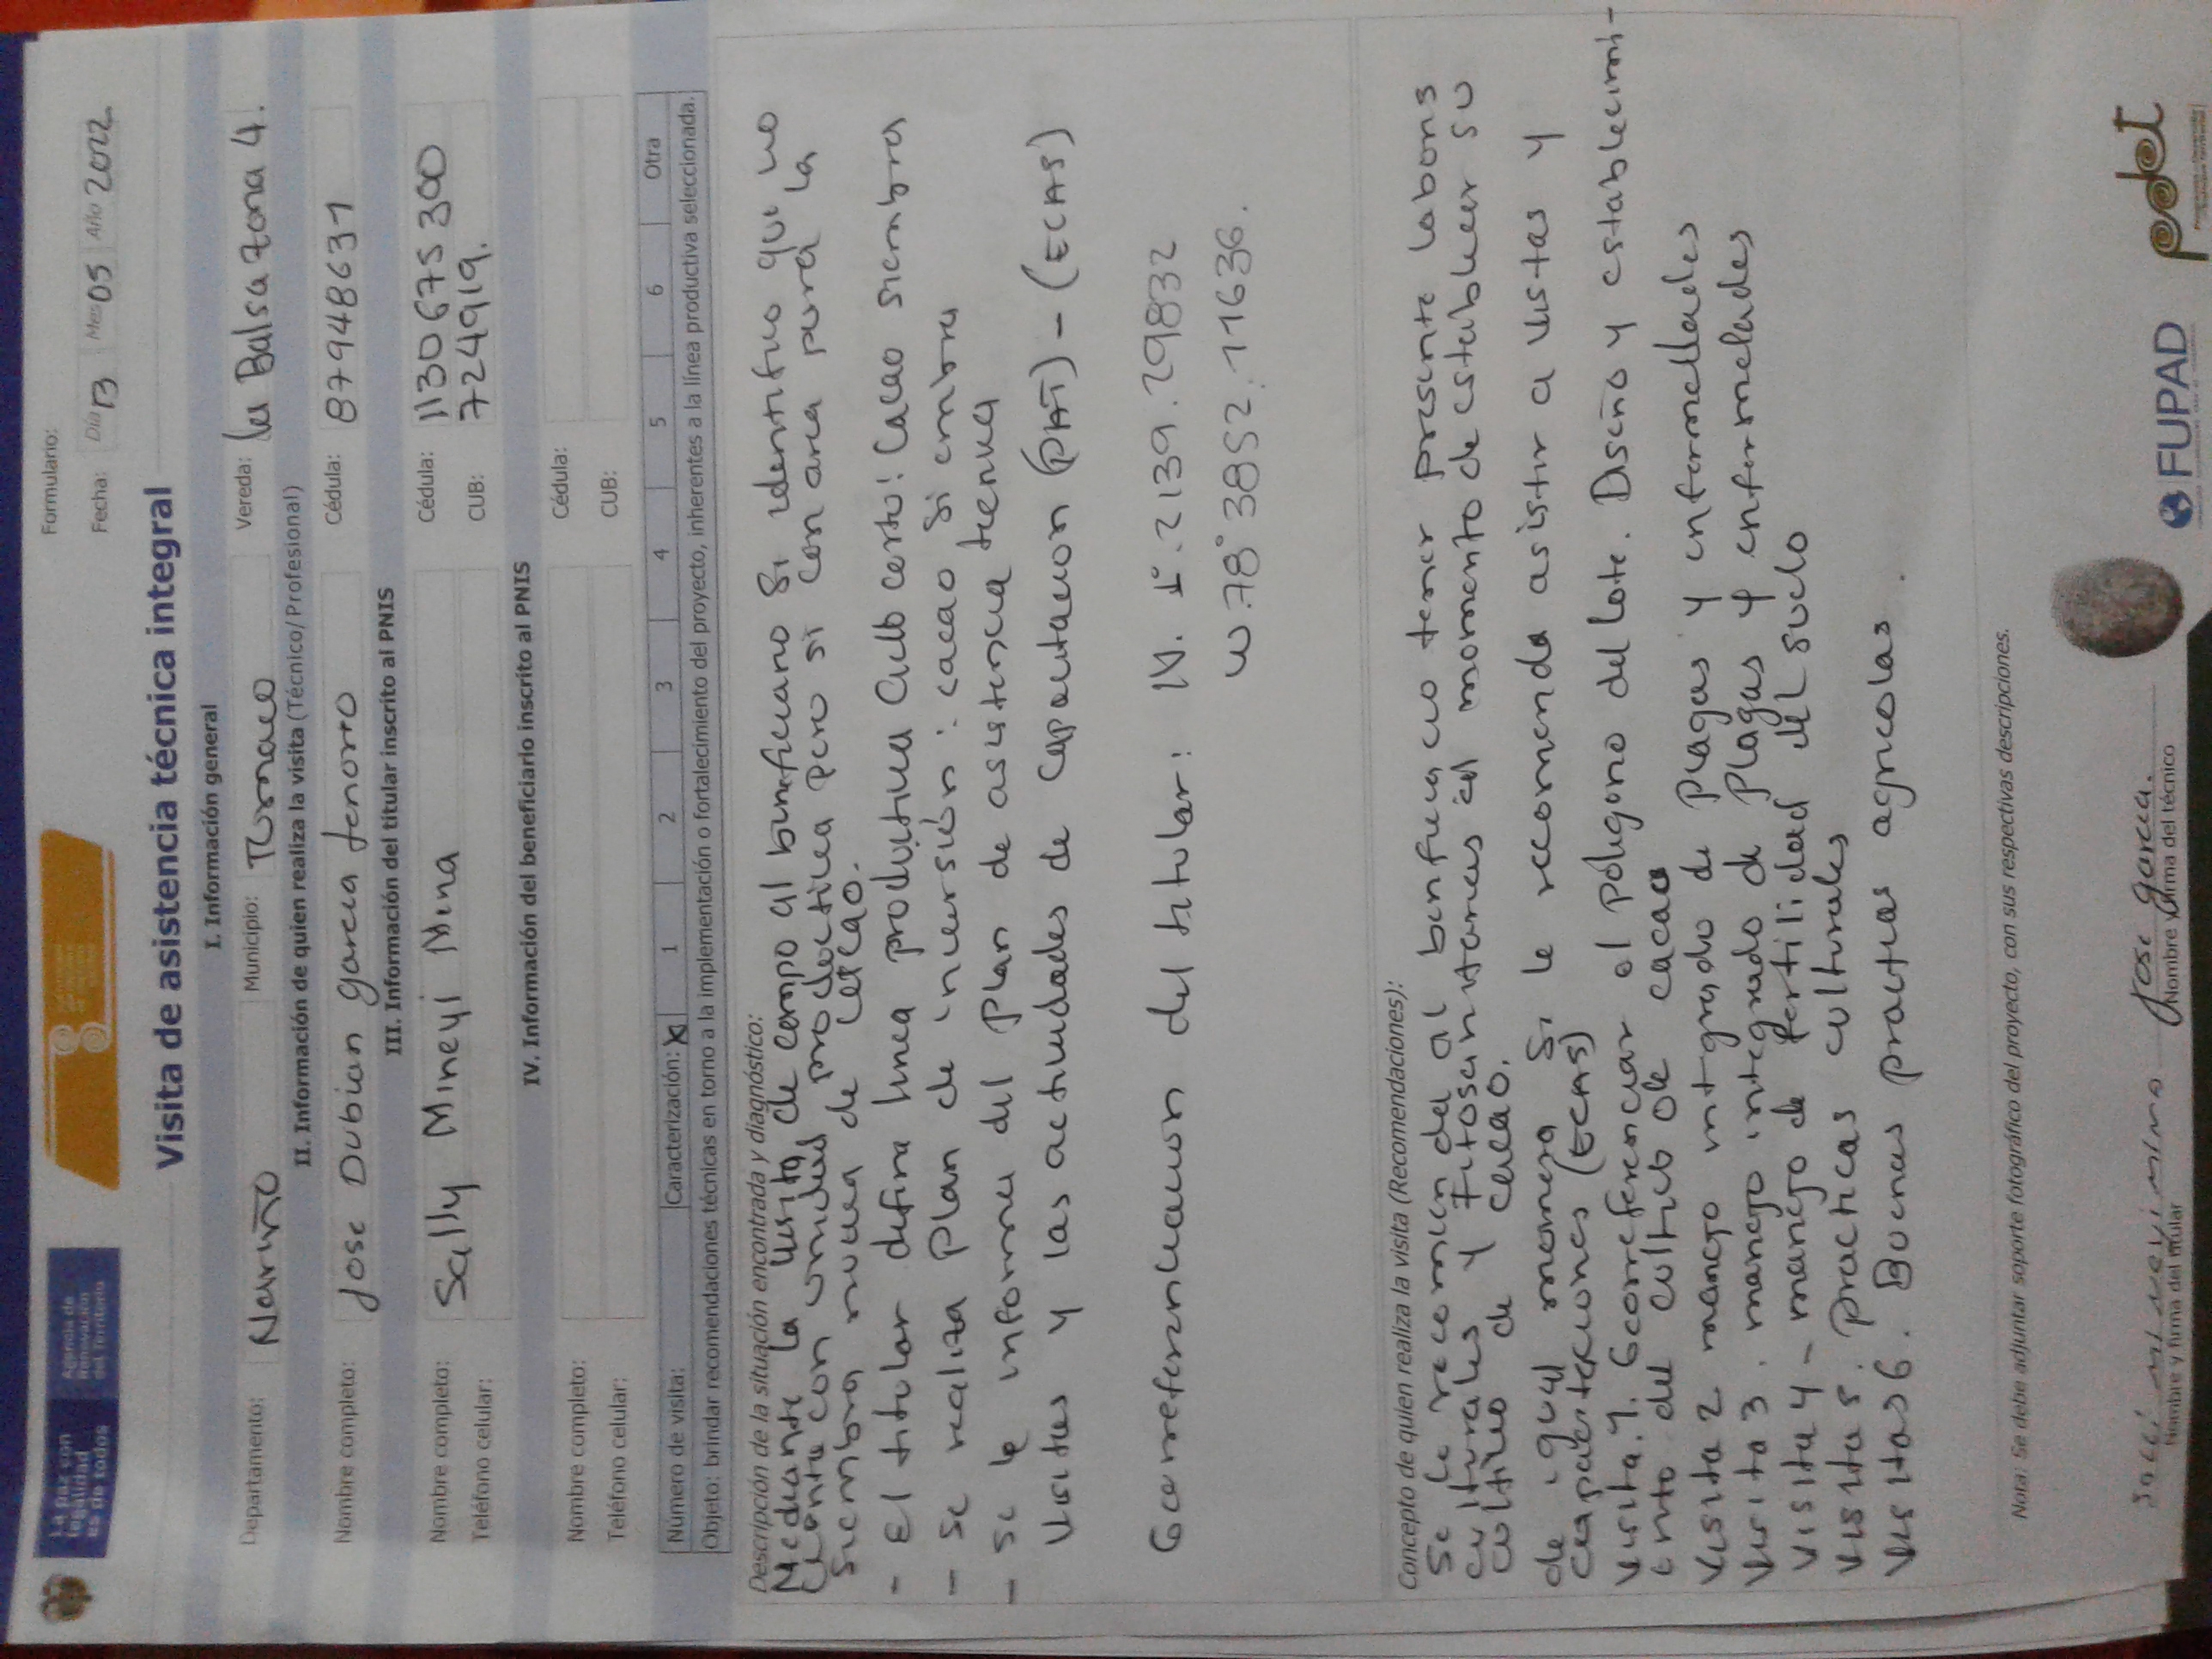 La paz con
legalidad
es de todos
Agencia de
Renovación
del Territorio
Formulario:
Fecha: Día 13 Mes 05 Año 2022
Visita de asistencia técnica integral
I. Información general
Departamento: Nariño Municipio: Tumaco Vereda: la Balsa zona 4.
II. Información de quien realiza la visita (Técnico/ Profesional)
Nombre completo: Jose Dubian garcia tenorio Cédula: 87948631
III. Información del titular inscrito al PNIS
Nombre completo: Sally Mineyi Mina Cédula: 1130675300
Teléfono celular: CUB: 724919.
IV. Información del beneficiario inscrito al PNIS
Nombre completo: Cédula:
Teléfono celular: CUB:
Número de visita: Caracterización: X 1 2 3 4 5 6 Otra
Objeto: brindar recomendaciones técnicas en torno a la implementación o fortalecimiento del proyecto, inherentes a la línea productiva seleccionada.
Descripción de la situación encontrada y diagnóstico:
Mediante la visita de campo al beneficiario Si identifico que no
cuenta con unidad productiva pero si con area para la
siembra nueva de cacao.
- El titular defina linea productiva Ciclo corto: Cacao siembra
- se realiza plan de inversión: cacao si embra
- se le informe del plan de asistencia tecnica
visitas y las actividades de Capacitacion (PAT) - (ECAS)
Georreferenciacion del titular: N. 1°.2139.29832
W.78°3852.11636.
Concepto de quien realiza la visita (Recomendaciones):
Se le recomienda al beneficiario tener presente labores
culturales y fitosanitarias el momento de establecer su
cultivo de cacao.
de igual manera Si le recomienda asistir a visitas y
capacitaciones (ECAS)
visita.1. Georreferenciar el poligono del lote. Diseño y establecimi-
ento del cultivo de cacao
visita 2 manejo integrado de plagas y enfermedades
visita 3. manejo integrado de plagas y enfermedades
visita 4 - manejo de fertilidad del suelo
visita 5. practicas culturales
visitas 6. Buenas practicas agricolas.
Nota: Se debe adjuntar soporte fotográfico del proyecto, con sus respectivas descripciones.
Jose garcia.
Nombre y firma del titular Nombre y firma del técnico
FUPAD
pdet